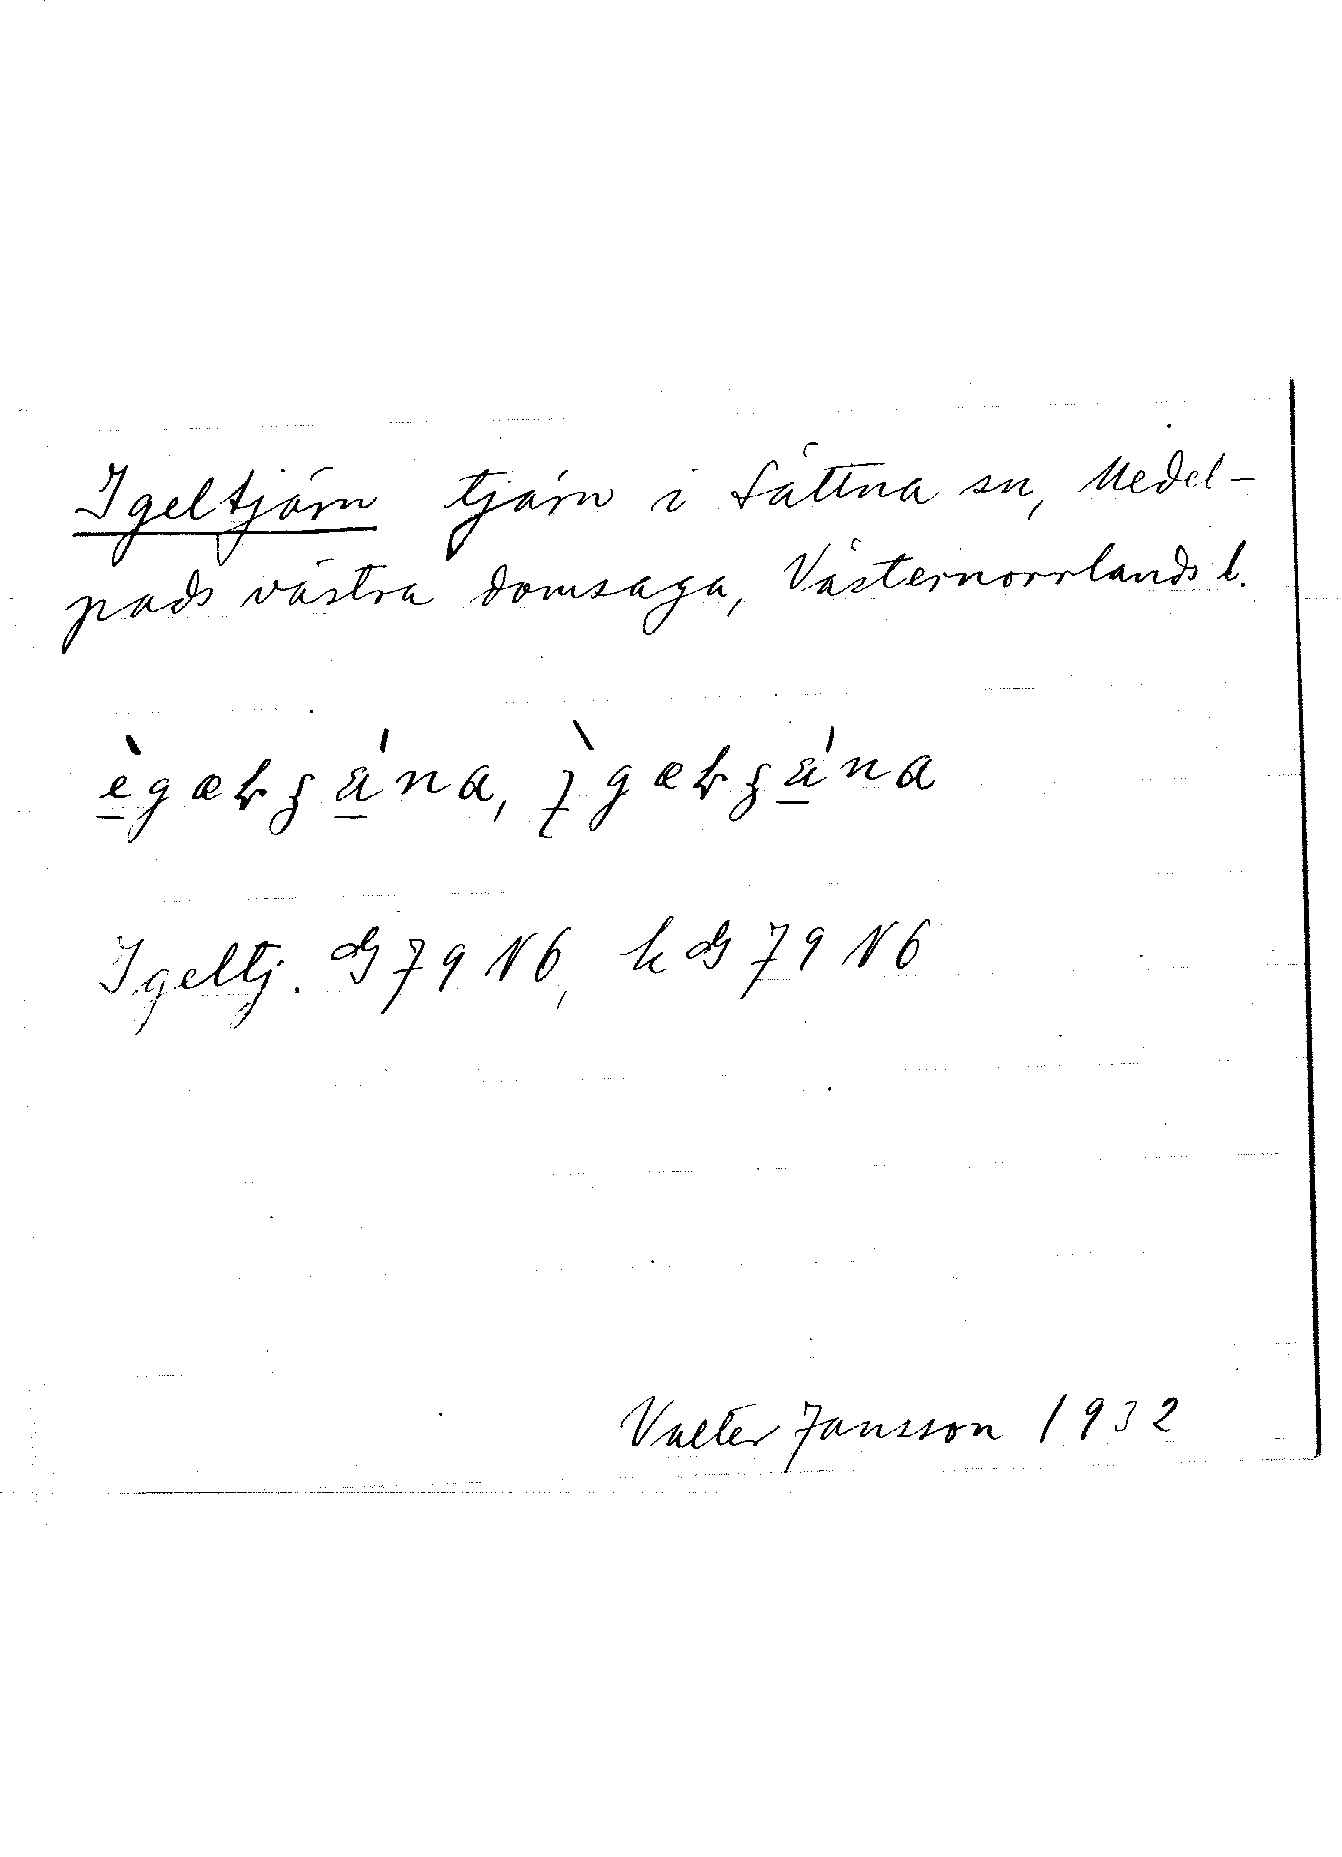 Igeltjärn tjärn i Sättna sn, Medel-
pads västra domsaga, Västernorrlands l.
Igeltj. G 79 N6, k G 79 N6
Valter Jansson 1932